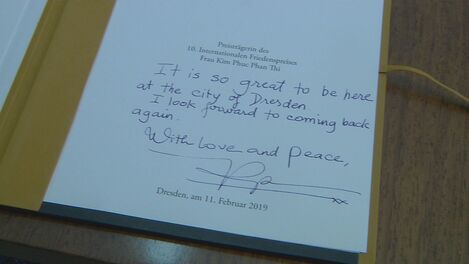 Preisträgerin des
10. Internationalen Friedenspreises
Frau Kim Phuc Phan Thi
It is so great to be here
at the city of Dresden
I look forward to coming back
again.
With Love and peace,
Dresden, am 11. Februar 2019